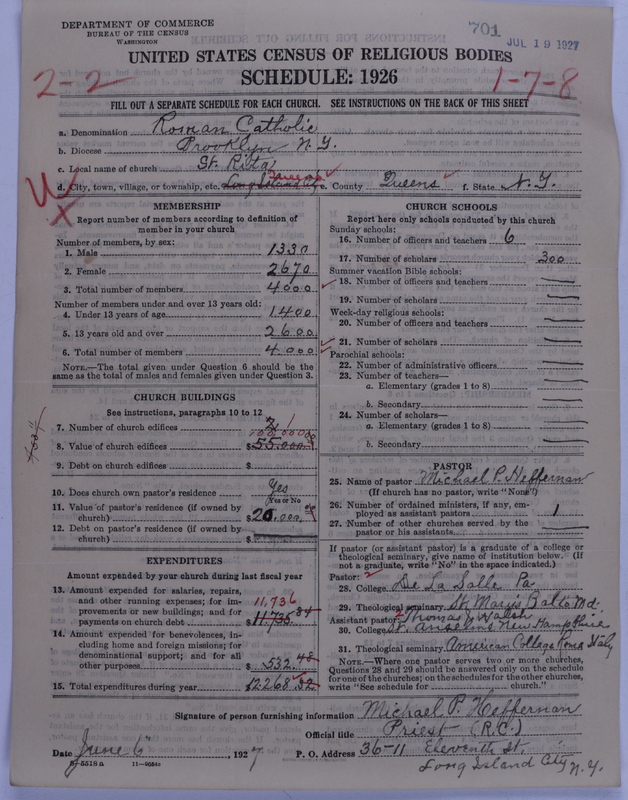 DEPARTMENT OF COMMERCE
BUREAU OF THE CENSUS
WASHINGTON
701
JUL 19 1927
UNITED STATES CENSUS OF RELIGIOUS BODIES
SCHEDULE: 1926
2-2
1-7-8
FILL OUT A SEPARATE SCHEDULE FOR EACH CHURCH. SEE INSTRUCTIONS ON THE BACK OF THIS SHEET
a. Denomination Roman Catholic
b. Diocese Brooklyn N.Y.
c. Local name of church St. Rita
d. City, town, village, or township, etc. Long Island City e. County Queens f. State N.Y.
MEMBERSHIP
Report number of members according to definition of
member in your church
Number of members, by sex:
1. Male 1330
2. Female 2670
3. Total number of members 4000
Number of members under and over 13 years old:
4. Under 13 years of age 1400
5. 13 years old and over 2600
6. Total number of members 4000
NOTE.—The total given under Question 6 should be
same as the total of males and females given under Question 3.
CHURCH BUILDINGS
See instructions, paragraphs 10 to 12
7. Number of church edifices 1
8. Value of church edifices $ 55,000
9. Debt on church edifices $
10. Does church own pastor's residence Yes
(Yes or No)
11. Value of pastor's residence (if owned by
church) $ 20,000
12. Debt on pastor's residence (if owned by
church) $
EXPENDITURES
Amount expended by your church during last fiscal year
13. Amount expended for salaries, repairs,
and other running expenses; for im-
provements or new buildings; and for
payments on church debt $ 11,735.84
11,736
14. Amount expended for benevolences, in-
cluding home and foreign missions; for
denominational support; and for all
other purposes $ 532.48
15. Total expenditures during year $ 12,268.32
CHURCH SCHOOLS
Report here only schools conducted by this church
Sunday schools:
16. Number of officers and teachers 6
17. Number of scholars 300
Summer vacation Bible schools:
18. Number of officers and teachers
19. Number of scholars
Week-day religious schools:
20. Number of officers and teachers
21. Number of scholars
Parochial schools:
22. Number of administrative officers
23. Number of teachers—
a. Elementary (grades 1 to 8)
b. Secondary
24. Number of scholars—
a. Elementary (grades 1 to 8)
b. Secondary
PASTOR
25. Name of pastor Michael P. Heffernan
(If church has no pastor, write "None")
26. Number of ordained ministers, if any, em-
ployed as assistant pastors 1
27. Number of other churches served by the
pastor or his assistants
If pastor (or assistant pastor) is a graduate of a college or
theological seminary, give name of institution below. (If
not a graduate, write "No" in the space indicated.)
Pastor:
28. College De La Salle Pa
29. Theological seminary St. Marys Balto Md.
Assistant pastor: Thomas J. Walsh
30. College St. Anselms New Hampshire
31. Theological seminary American College Rome Italy
NOTE.—Where one pastor serves two or more churches,
Questions 28 and 29 should be answered only on the schedule
for one of the churches; on the schedules for the other churches,
write "See schedule for church."
Signature of person furnishing information Michael P. Heffernan
Official title Priest (R.C.)
Date June 6 1927. P. O. Address 36-11 Eleventh St.
Long Island City N.Y.
8-5518 a